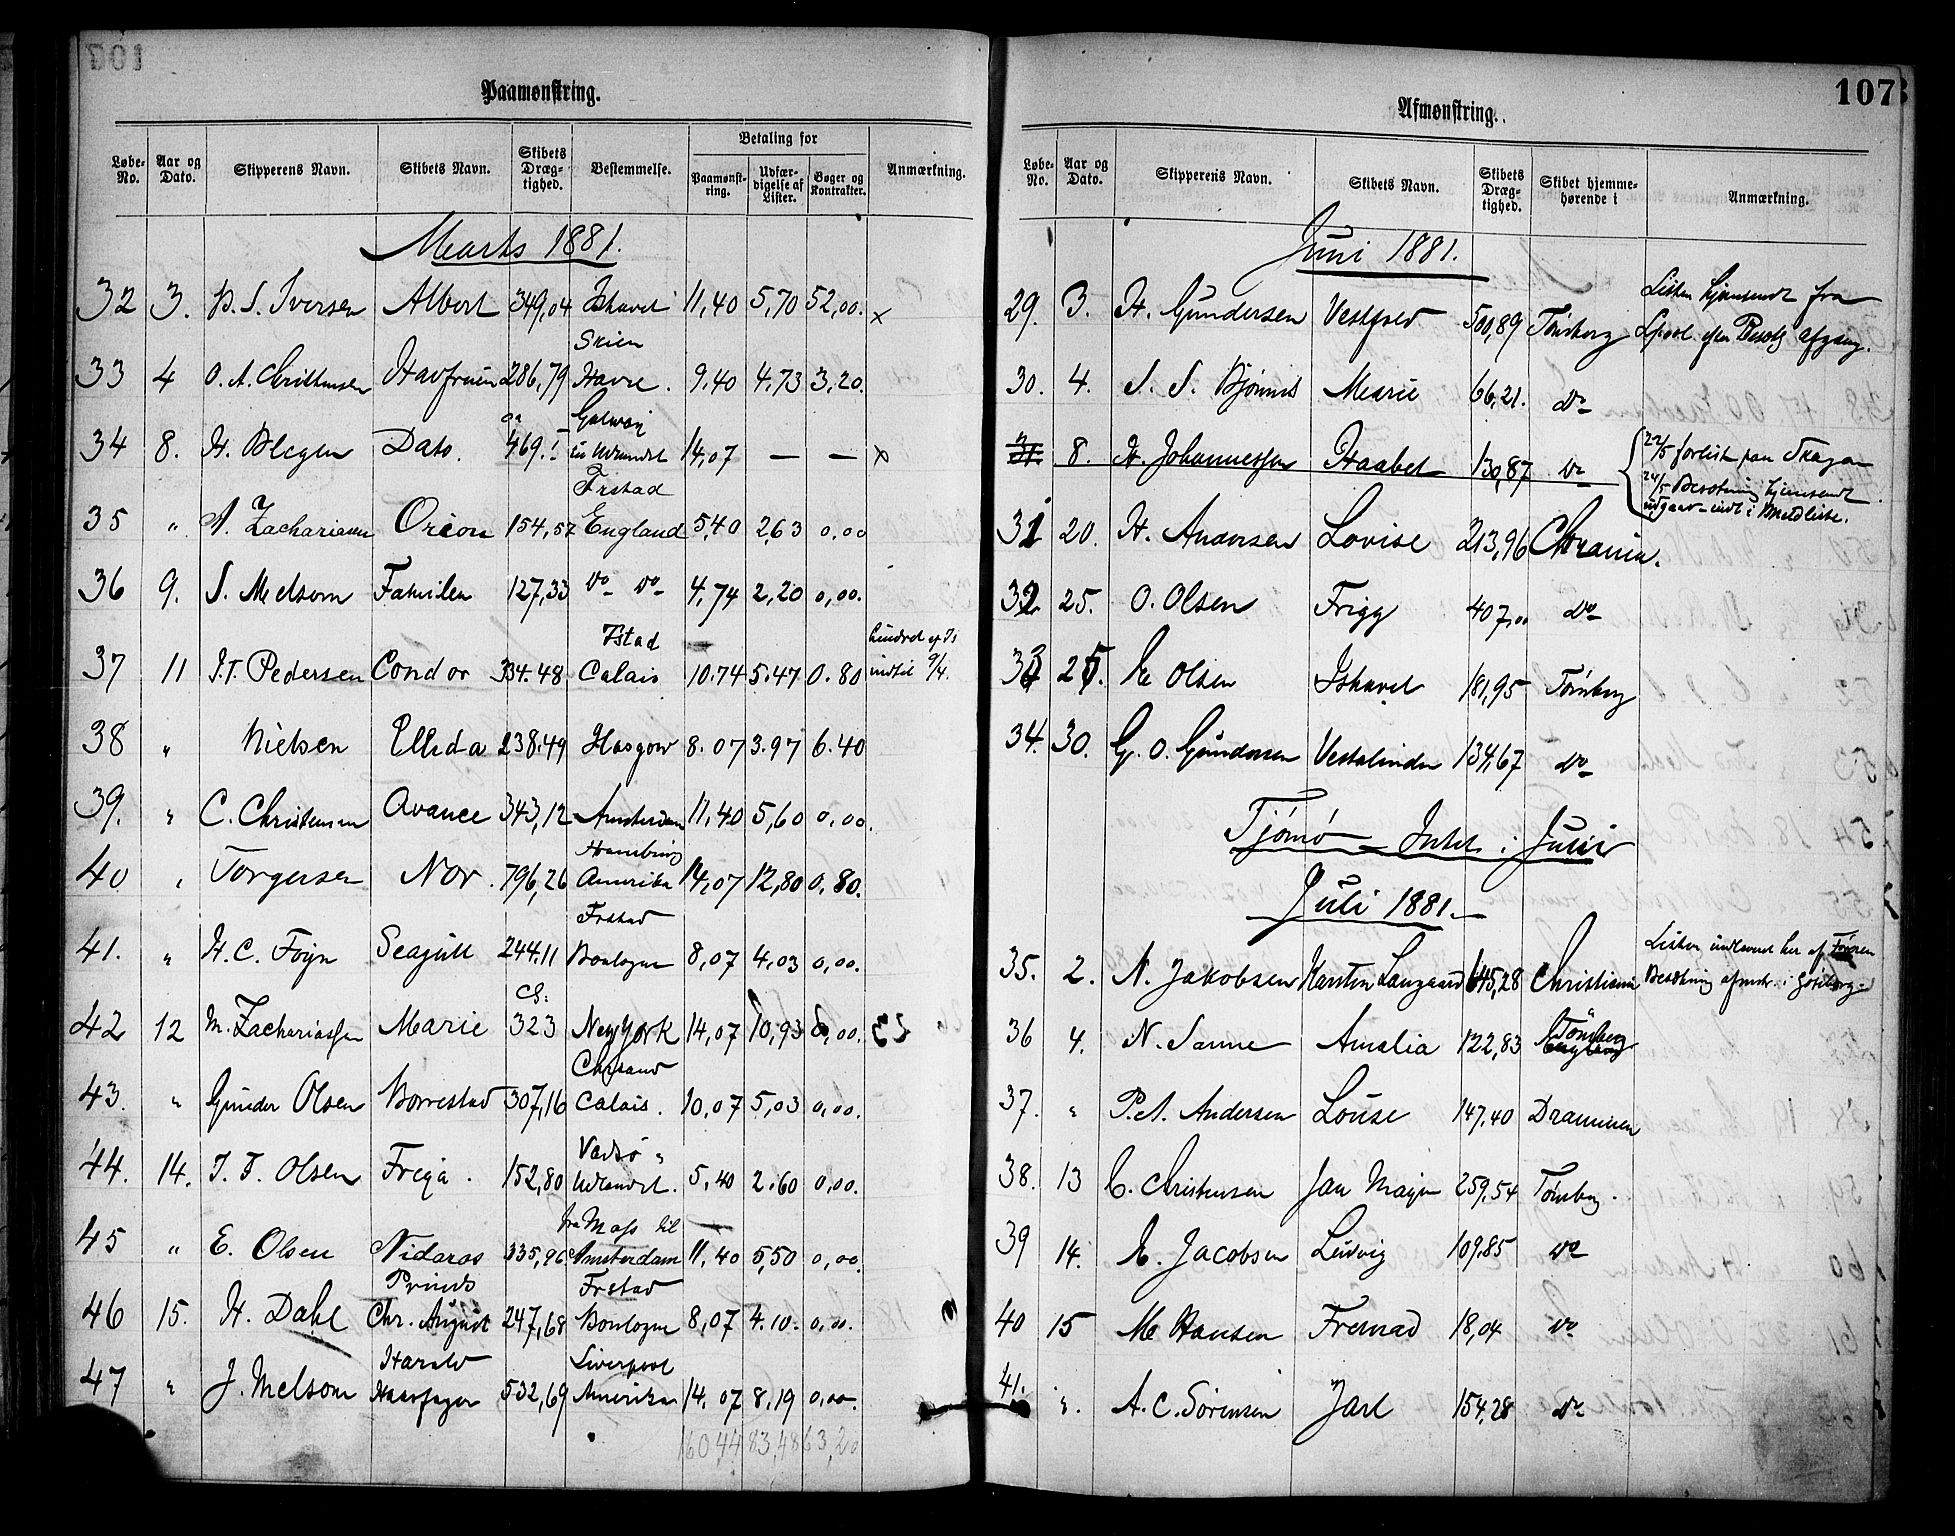 Paamønstring.
Løbe-No. Aar og Dato. Skipperens Navn. Skibets Navn. Skibets Dræg-tighed. Bestemmelse. Betaling for Paamønst-ring. Udfær-digelse af Lister. Bøger og Kontrakter. Anmærkning.
Marts 1881.
32 3. Iversen Albert 349,04 Ishavet 11,40 5,70 52,00. x
Skien
33 4 O. A. Christensen Havfruen 286,79 Havre. 9.40 4.73 3,20.
ca Galway
34 8. H. Blegen Dato. 469.- 14,07 — — x
Frstad
35 " A. Zachariasen Orion 154,57 England 5,40 2,63 0,00
36 9. S. Melsom Familien 127,33 do do 4,74 2,20 0,00.
Fstad hindret af Is
37 11 J.T. Pedersen Condor 334.48 Calais 10.74 5.47 0.80 indtil 9/4.
38 " Nielsen Ellida 238.49 Glasgow 8.07 3.97 6.40
39. " C. Christensen Avance 343,12 Amsterdam 11,40 5,60 0,00.
Hamburg
40 " Torgersen Nor. 796,26 Amerika 14,07 12,80 0,80.
Frstad
41. " H. C. Föyn Seagull 244.11 Boulogne 8,07 4.03 0,00.
42 12 M. Zachariassen Marie 323 New York 14,07 10,93 0,00.
Chrsand
43. " Gunder Olsen Borrestad 307,16 Calais. 10,07 5,03 0,00.
Vadsö
44. 14. J. F. Olsen Freja. 152,80 Udlandet. 5,40 2.60 0,00.
fra Moss til
45 " E. Olsen Nidaros 335,96 Amsterdam 11,40 5,50 0,00.
Prinds Frstad
46 15. H. Dahl Chr. August 247,68 Boulogne 8,07 4.10. 0,00.
Harald Liverpool
47 " J. Melsom Haarfager 532,69 Amerika 14.07 8,19 0,00.
160,44 83,48 63,20
107
Afmønstring.
Løbe-No. Aar og Dato. Skipperens Navn. Skibets Navn. Skibets Dræg-tighed. Skibet hjemme-hørende i Anmærkning.
Juni 1881.
Listen hjemsendt fra
29. 3. H. Gundersen Vestfold 500,89 Tönsberg Lpool. efter Besætn afgang.
30. 4. S. S. Bjönnes Marie 66,21. do
22/5 forlist paa Skagen
31. 8. H. Johannessen Haabet 130,87 do 24/5 Besætning hjemsendt
udgaar - indt i
31 20. H. Andersen Lovise 213,96 Chrania.
32 25. O. Olsen Frigg 407,00 do
33 25. E Olsen Ishavet 181,95 Tönsberg
34. 30. G. O. Gundersen Vestalinden 134,67 do
Tjömö - Intet i Juni
Juli 1881.
Listen indleveret her af Föreren
35. 2. N. Jakobsen Karsten Langaard 645,28 Christiania Besætning afmstr. i Göteborg.
36 4. N. Sanne Amalia 122,83 Tönsberg
37. " P.A. Andersen Louise 147.40 Drammen
38. 13 C. Christensen Jan Mayn 259,54 Tönsberg.
39 14. E. Jacobsen Ludvig 109.85 do
40 15 M Hansen Fremad 18,04 do
41. ". A. C. Sörensen Jarl 154,28 do